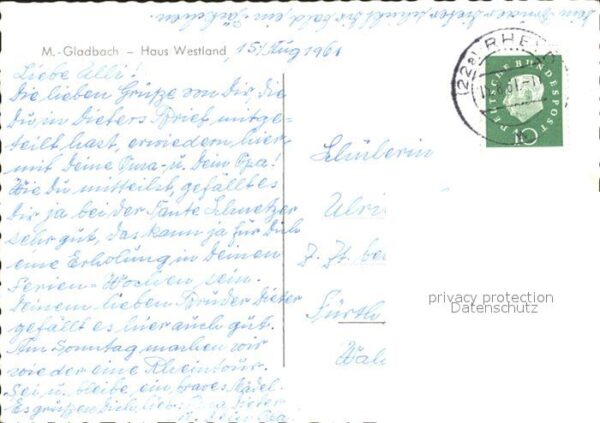 dein Bruder Dieter schickt Dir bald ein Päckchen.
M.-Gladbach – Haus Westland
15/Aug 1961
Liebe Ulli!
Die lieben Grüße von Dir, die
Du in Dieters Brief mitge-
teilt hast, erwiedern hier-
mit Deine Oma u. Dein Opa!
Wie Du mitteilst, gefällt es
Dir ja bei der Tante Schwetzer
sehr gut, das kann ja für Dich
eine Erholung in Deinen
Ferien-Wochen sein.
Deinem lieben Bruder Dieter
gefällt es hier auch gut.
Am Sonntag machen wir
wieder eine Rheintour.
Sei u. bleibe ein braves Mädel.
Es grüßen Dich, liebe
Dieter
(22a) RHEYD
DEUTSCHE BUNDESPOST
10
Schülerin
Ulri
Z. Zt. bei
Fürth
Wal
privacy protection
Datenschutz